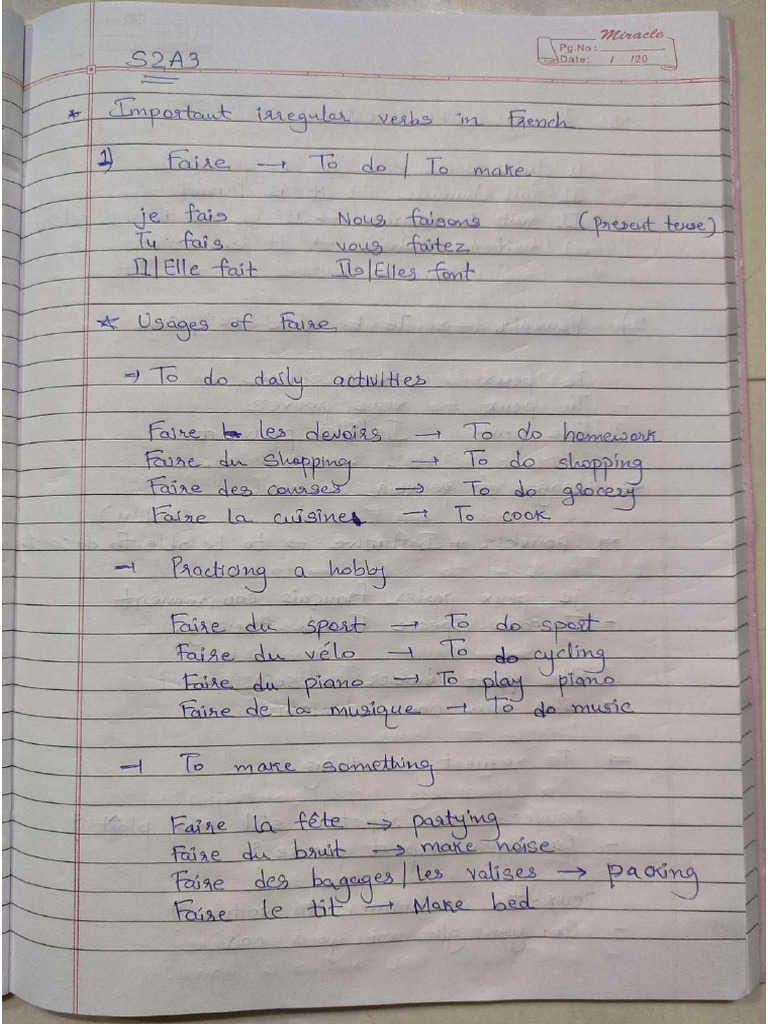 Miracle
Pg.No:
Date: / /20
S2A3
* Important irregular verbs in French
1) Faire → To do / To make
je fais Nous faisons (Present tense)
Tu fais vous faitez
Il/Elle fait Ils/Elles font
* Usages of Faire
→ To do daily activities
Faire les devoirs → To do homework
Faire du shopping → To do shopping
Faire des courses → To do grocery
Faire la cuisine → To cook
→ Practicing a hobby
Faire du sport → To do sport
Faire du vélo → To do cycling
Faire du piano → To play piano
Faire de la musique → To do music
→ To make something
Faire la fête → partying
Faire du bruit → make noise
Faire des bagages/les valises → packing
Faire le tit → Make bed